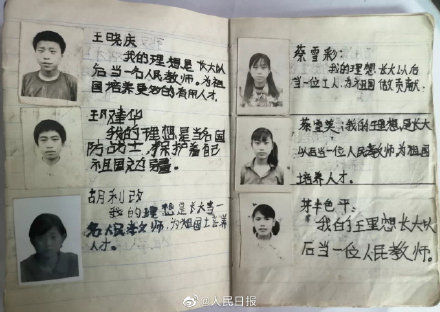 王晓庆
我的理想是长大以
后当一名人民教师。为祖
国培养更多的有用人才。
建华
我的理想是当名国
防战士 保护着自己
祖国边疆。
胡利改
我的理想是长大当一
名人民教师,为祖国培养
人才。
蔡雪彩:
我的理想长大以后
当一位工人,为祖国做贡献.
蔡雪笑:我的理想,是长大
以后当一位人民教师为祖国
培养人才。
平:
我的王里想长大以
后当一位人民教师。
@人民日报